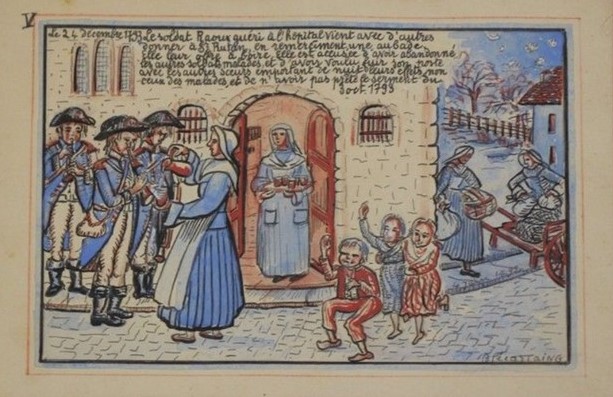 V
Le 24 décembre 1793 Le soldat Raoux guéri à l'hôpital vient avec d'autres
donner à Sr Rutan, en remerciment, une aubade.
Elle leur offre à boire. Elle est accusée d'avoir abandonné
les autres soldats malades et d'avoir voulu fuir son poste
avec les autres sœurs emportant de nuit leurs effets, non
ceux des malades et de n'avoir pas prêté le serment du
3 oct. 1793